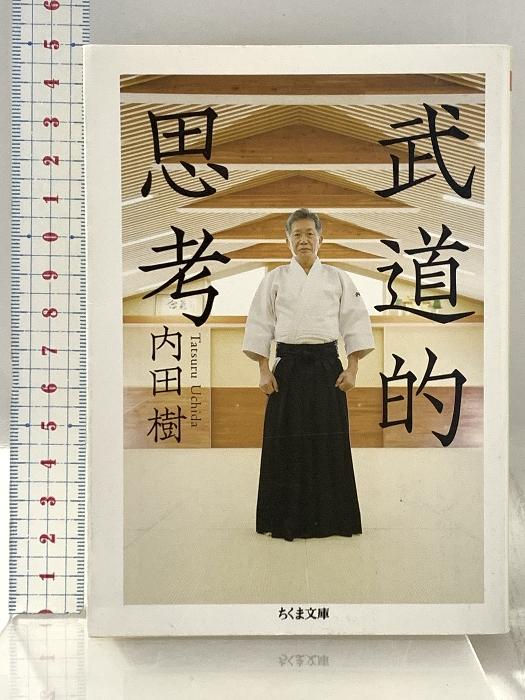 武道的
思考
内田樹
Tatsuru Uchida
ちくま文庫
6
5
4
3
2
1
0
9
8
7
6
5
4
3
2
1
0